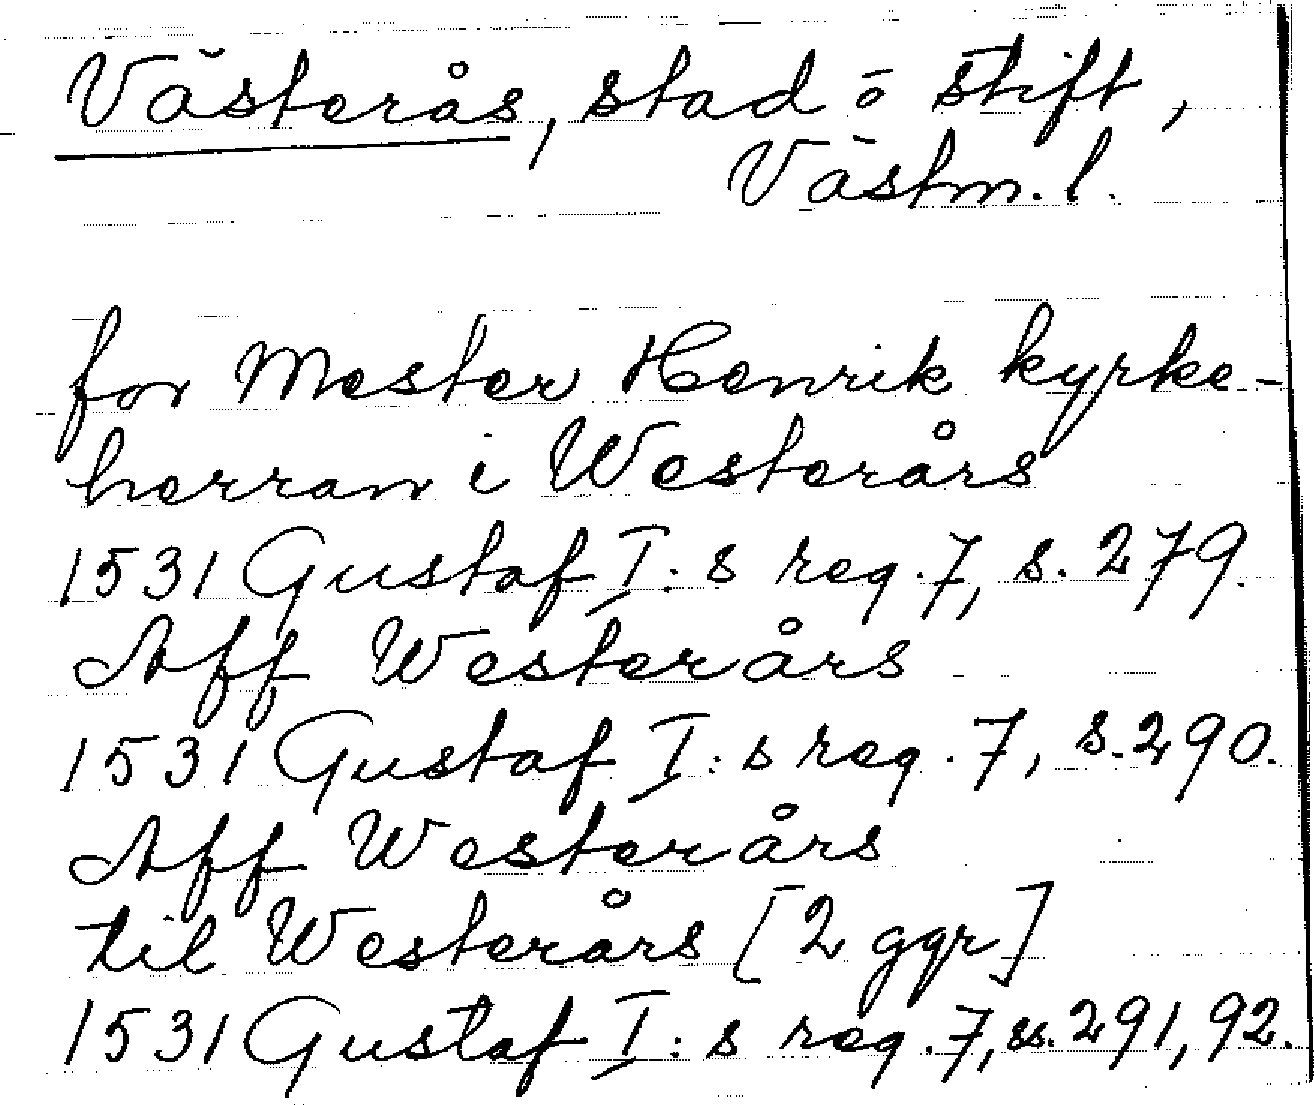 Västerås, stad o stift,
Västm. l.
for Mester Henrik kyrke-
herran i Westerårs
1531 Gustaf I:s reg. 7, s. 279.
Aff Westerårs
1531 Gustaf I:s reg. 7, s. 290.
Aff Westerårs
til Westerårs [2 ggr]
1531 Gustaf I:s reg. 7, ss. 291, 92.